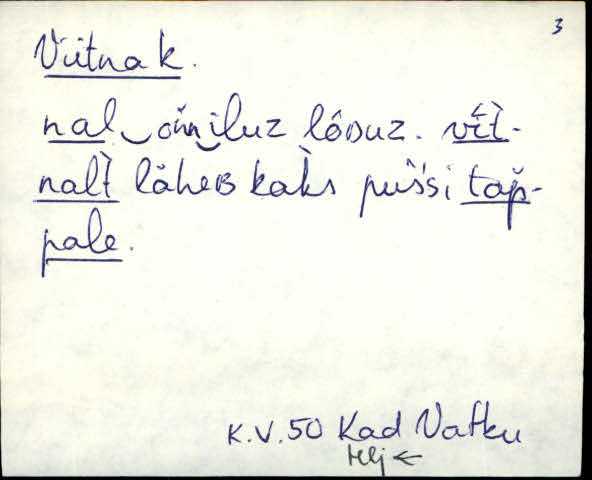 3
Viitnak.
nal‿om̀‿iluz lôᴅuz. vīt̀-
nalt̀ lähеʙ kak̀s püśśi tap̆-
pale.
K.V.50 Kad Vatku
Hlj ←